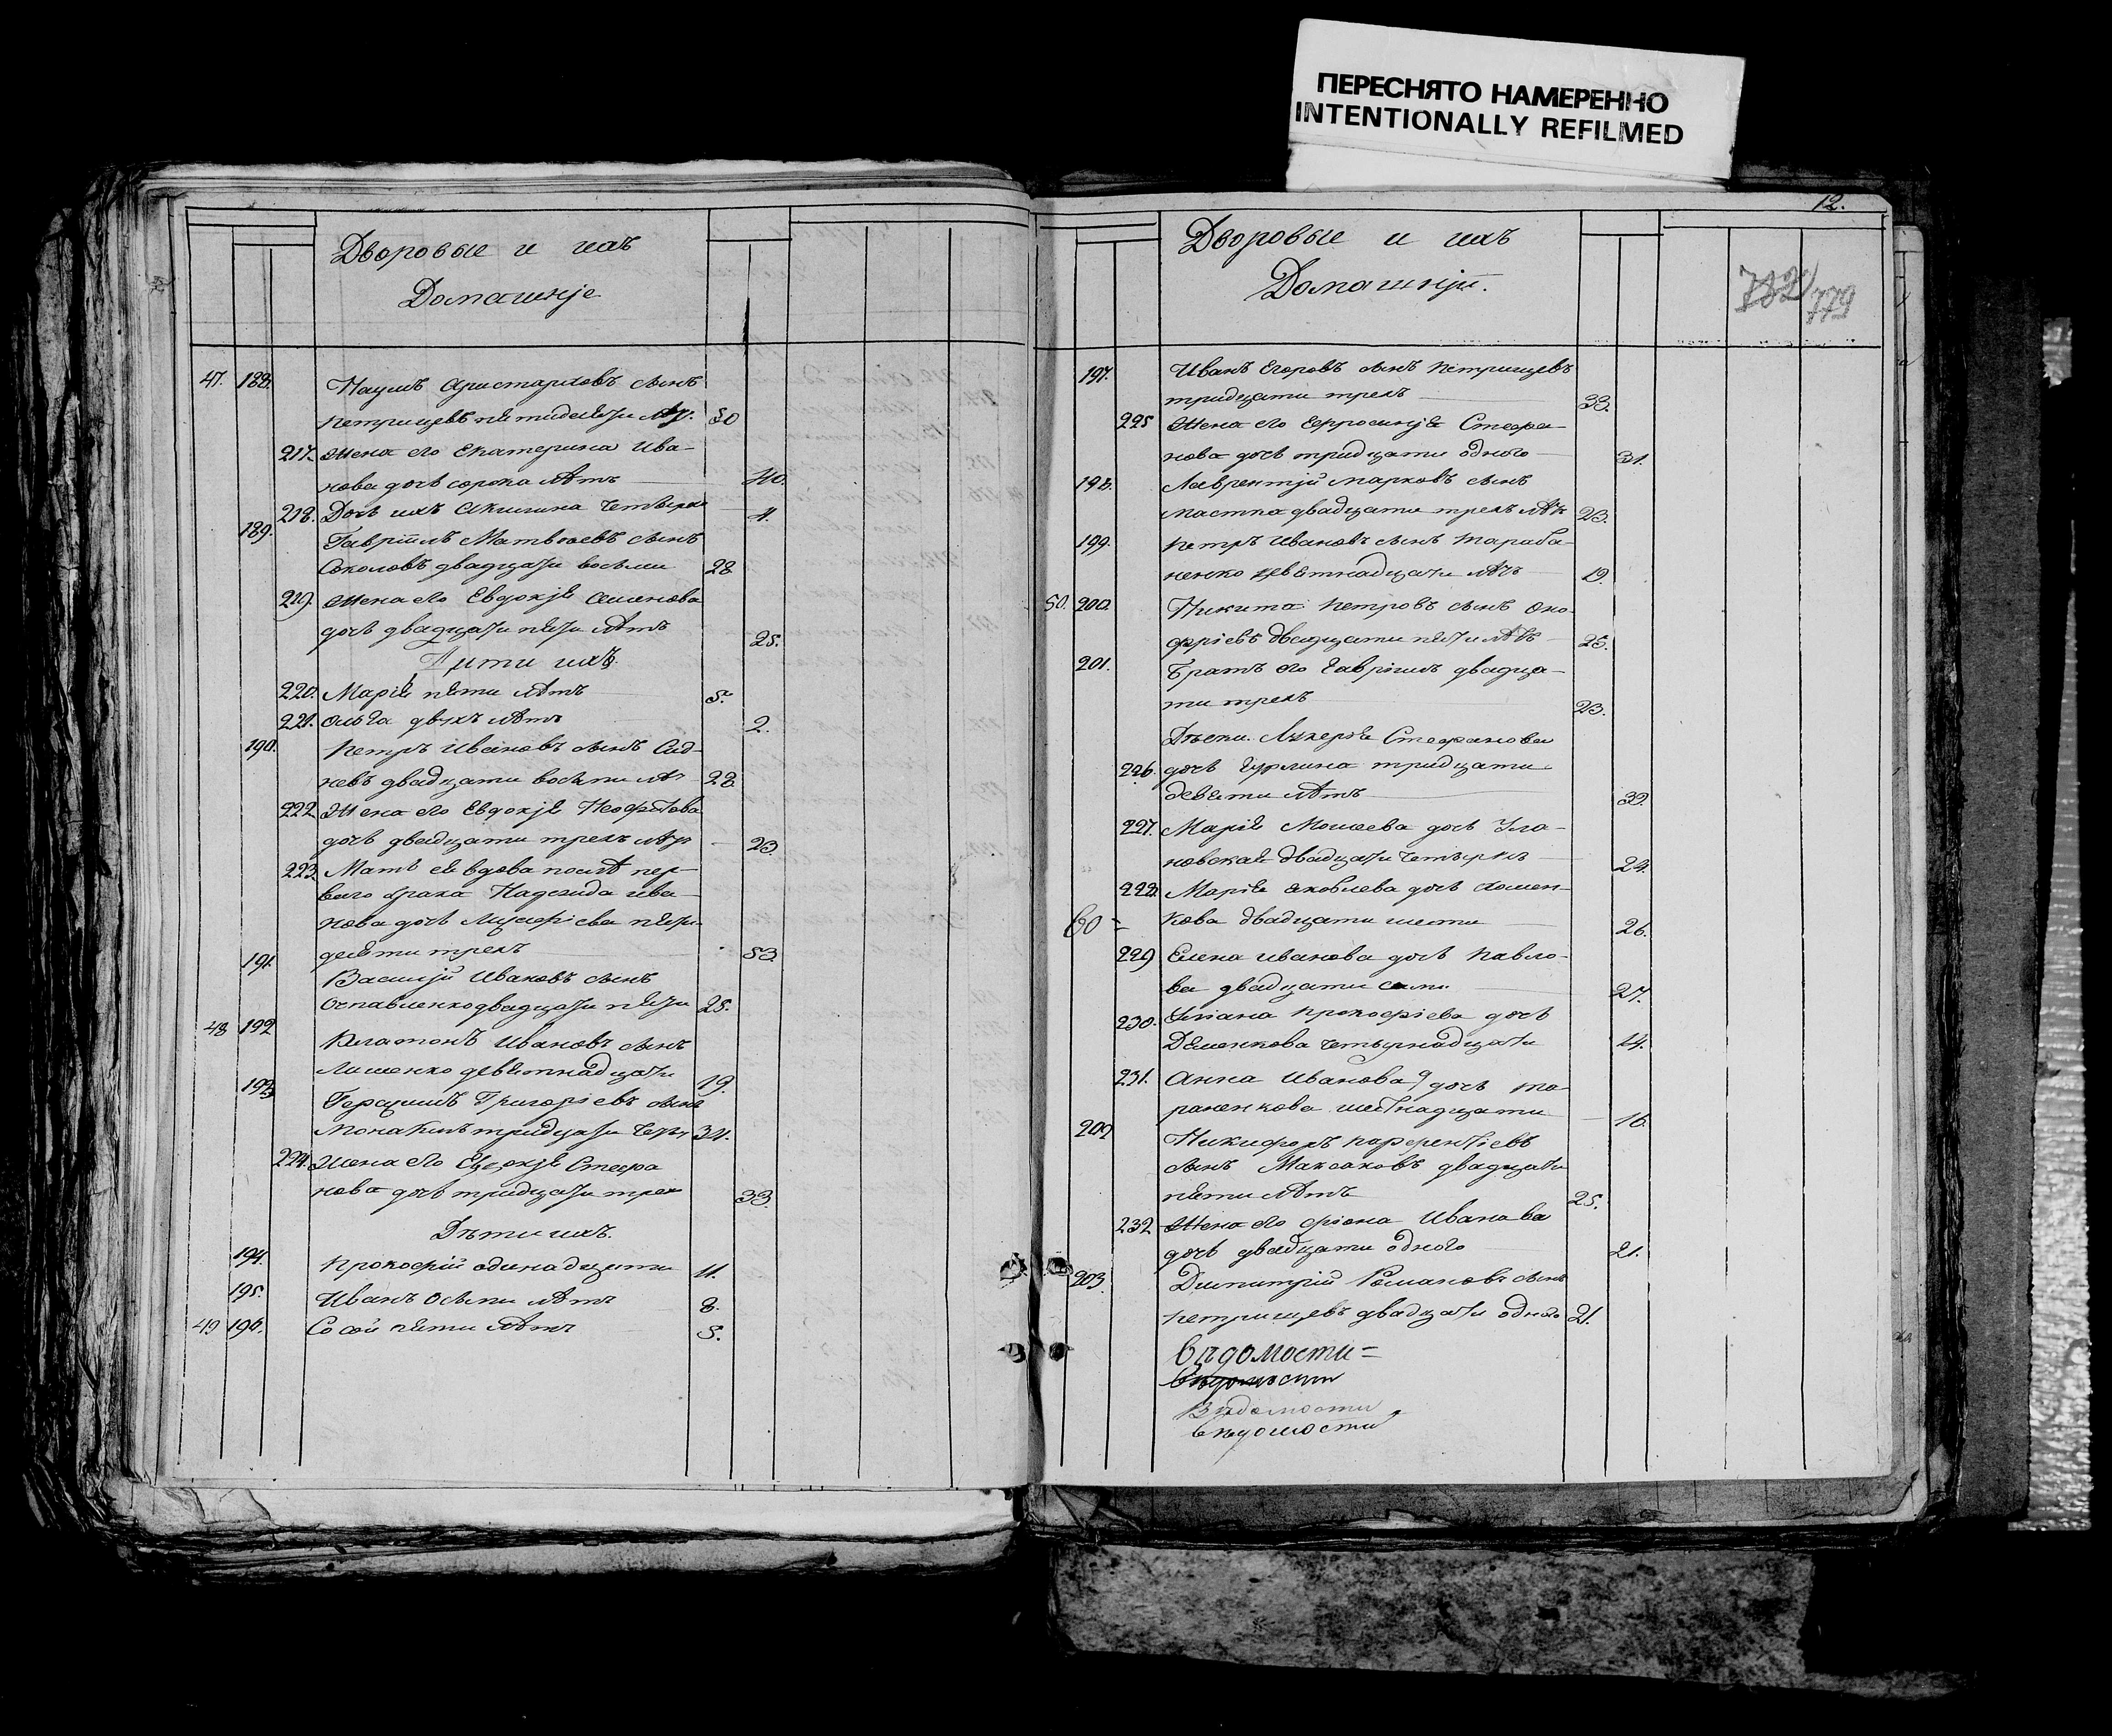 ПЕРЕСНЯТО НАМЕРЕННО
INTENTIONALLY REFILMED
Дворовые и ихъ
Домашнје
47. 188. Наумъ Аристарховъ сынъ
Петрищевъ пятидесяти лѣт. 50
217. Жена его Екатерина Ива-
нова дочь сорока лѣтъ 40.
218. Дочь ихъ Акилина четырехъ 4.
189. Гавріилъ Матвѣевъ сынъ
Соколовъ двадцати восьми 28
219. Жена его Евдокія Семенова
дочь двадцати пяти лѣтъ 25.
Дѣти ихъ.
220. Марія пяти лѣтъ 5.
221. Ольга двухъ лѣтъ 2.
190. Петръ Ивановъ сынъ Сид-
невъ двадцати восьми лѣт 28
222. Жена его Евдокія Неофитова
дочь двадцати трехъ лѣт 23.
223. Мать ея вдова послѣ пер-
ваго брака Надежда Ива-
нова дочь пяти-
десяти трехъ 53.
191. Василій Ивановъ сынъ
двадцати пяти 25.
48 192 Платонъ Ивановъ сынъ
Лишенко девятнадцати 19.
193. Герасимъ Григоріевъ сынъ
тридцати четы 34.
224. Жена его Евдокія Стефа
нова дочь тридцати трех 33.
Дѣти ихъ.
194. Прокофій одинадцати 11.
195. Иванъ осьми лѣтъ 8.
49 196. пяти лѣтъ 5.
12.
Дворовые и ихъ
Домашнји.
782/779
197. Иванъ Егоровъ сынъ Петрищевъ
тридцати трехъ 33.
225 Жена его Ефросинія Стефа-
нова дочь тридцати одного 31.
198. Лаврентій Марковъ сынъ
Мастка двадцати трехъ лѣт 23.
199. Петръ Ивановъ сынъ Тараба-
ненко девятнадцати лѣтъ 19.
50. 200. Никита Петровъ сынъ Оно-
фріевъ двадцати пяти лѣтъ 25.
201. Братъ его Гавріилъ двадца-
ти трехъ 23.
Дѣвки. Лукерія Стефанова
226. дочь Гурлина тридцати
девяти лѣтъ 39.
227. Марія Моисеева дочь Ула-
новская двадцати четырехъ 24.
228. Марія Яковлева дочь Хомен-
60 = кова двадцати шести 26.
229 Елена Иванова дочь Павло-
ва двадцати семи 27.
230. Уліана Прокофіева дочь
Деменкова четырнадцати 14.
231. Анна Иванова дочь Та-
раненкова шестнадцати 16.
202 Никифоръ Парфентіевъ
сынъ Максаковъ двадцати
пяти лѣтъ 25.
232 Жена его Фіона Иванова
дочь двадцати одного 21.
203. Димитрій Романовъ сынъ
Петрищевъ двадцати одного 21.
Вѣдомости =
Вѣдомости
Вѣдомости
вѣдомости